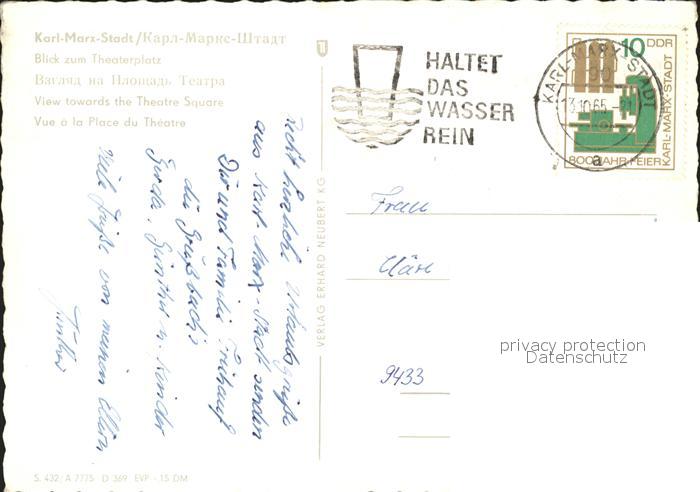 Karl-Marx-Stadt/Карл-Маркс-Штадт
Blick zum Theaterplatz
Взгляд на Площадь Театра
View towards the Theatre Square
Vue à la Place du Théatre
HALTET
DAS
WASSER
REIN
KARL-MARX-STADT
90
13.10.65-21
a
10 DDR
KARL-MARX-STADT
800 JAHR-FEIER
Recht herzliche Urlaubsgrüße
aus Karl-Marx-Stadt senden
Dir und Familie Frühauf
die
Gerda, Günther u. Kinder
Viele Grüße von meinen Eltern
VERLAG ERHARD NEUBERT KG
Frau
9433
privacy protection
Datenschutz
S. 432/A 7775 D 369 EVP -.15 DM